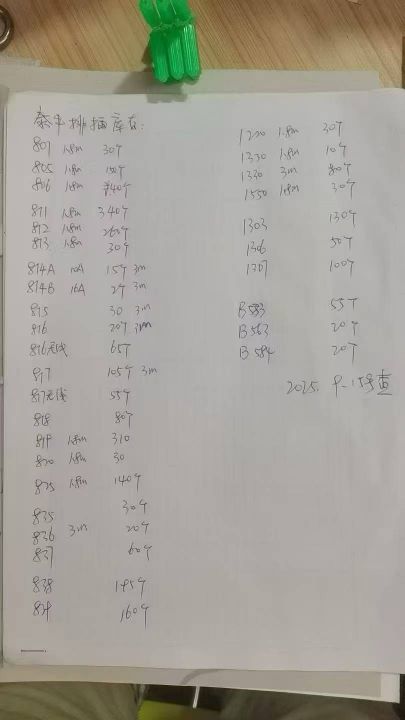 泰平排插库存:
801 1.8m 30个
805 1.8m 100个
806 1.8m 40个
811 1.8m 340个
812 1.8m 260个
813 1.8m 30个
814A 10A 15个 3m
814B 16A 2个 3m
815 30 3m
816 20个 3m
816无线 65个
817 105个 3m
817无线 55个
818 80个
819 1.8m 310
820 1.8m 30
825 1.8m 140个
835 30个
836 3m 20个
837 60个
838 195个
839 160个
1220 1.8m 30个
1330 1.8m 10个
1330 3m 80个
1550 1.8m 30个
1303 130个
1306 50个
1307 100个
B583 55个
B563 20个
B584 20个
2025. 9-15号查